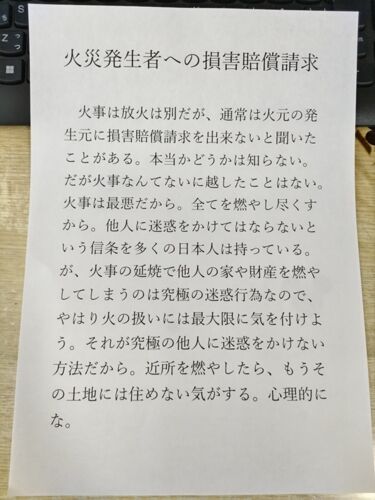 火災発生者への損害賠償請求
火事は放火は別だが、通常は火元の発
生元に損害賠償請求を出来ないと聞いた
ことがある。本当かどうかは知らない。
だが火事なんてないに越したことはない。
火事は最悪だから。全てを燃やし尽くす
から。他人に迷惑をかけてはならないと
いう信条を多くの日本人は持っている。
が、火事の延焼で他人の家や財産を燃や
してしまうのは究極の迷惑行為なので、
やはり火の扱いには最大限に気を付けよ
う。それが究極の他人に迷惑をかけない
方法だから。近所を燃やしたら、もうそ
の土地には住めない気がする。心理的に
な。